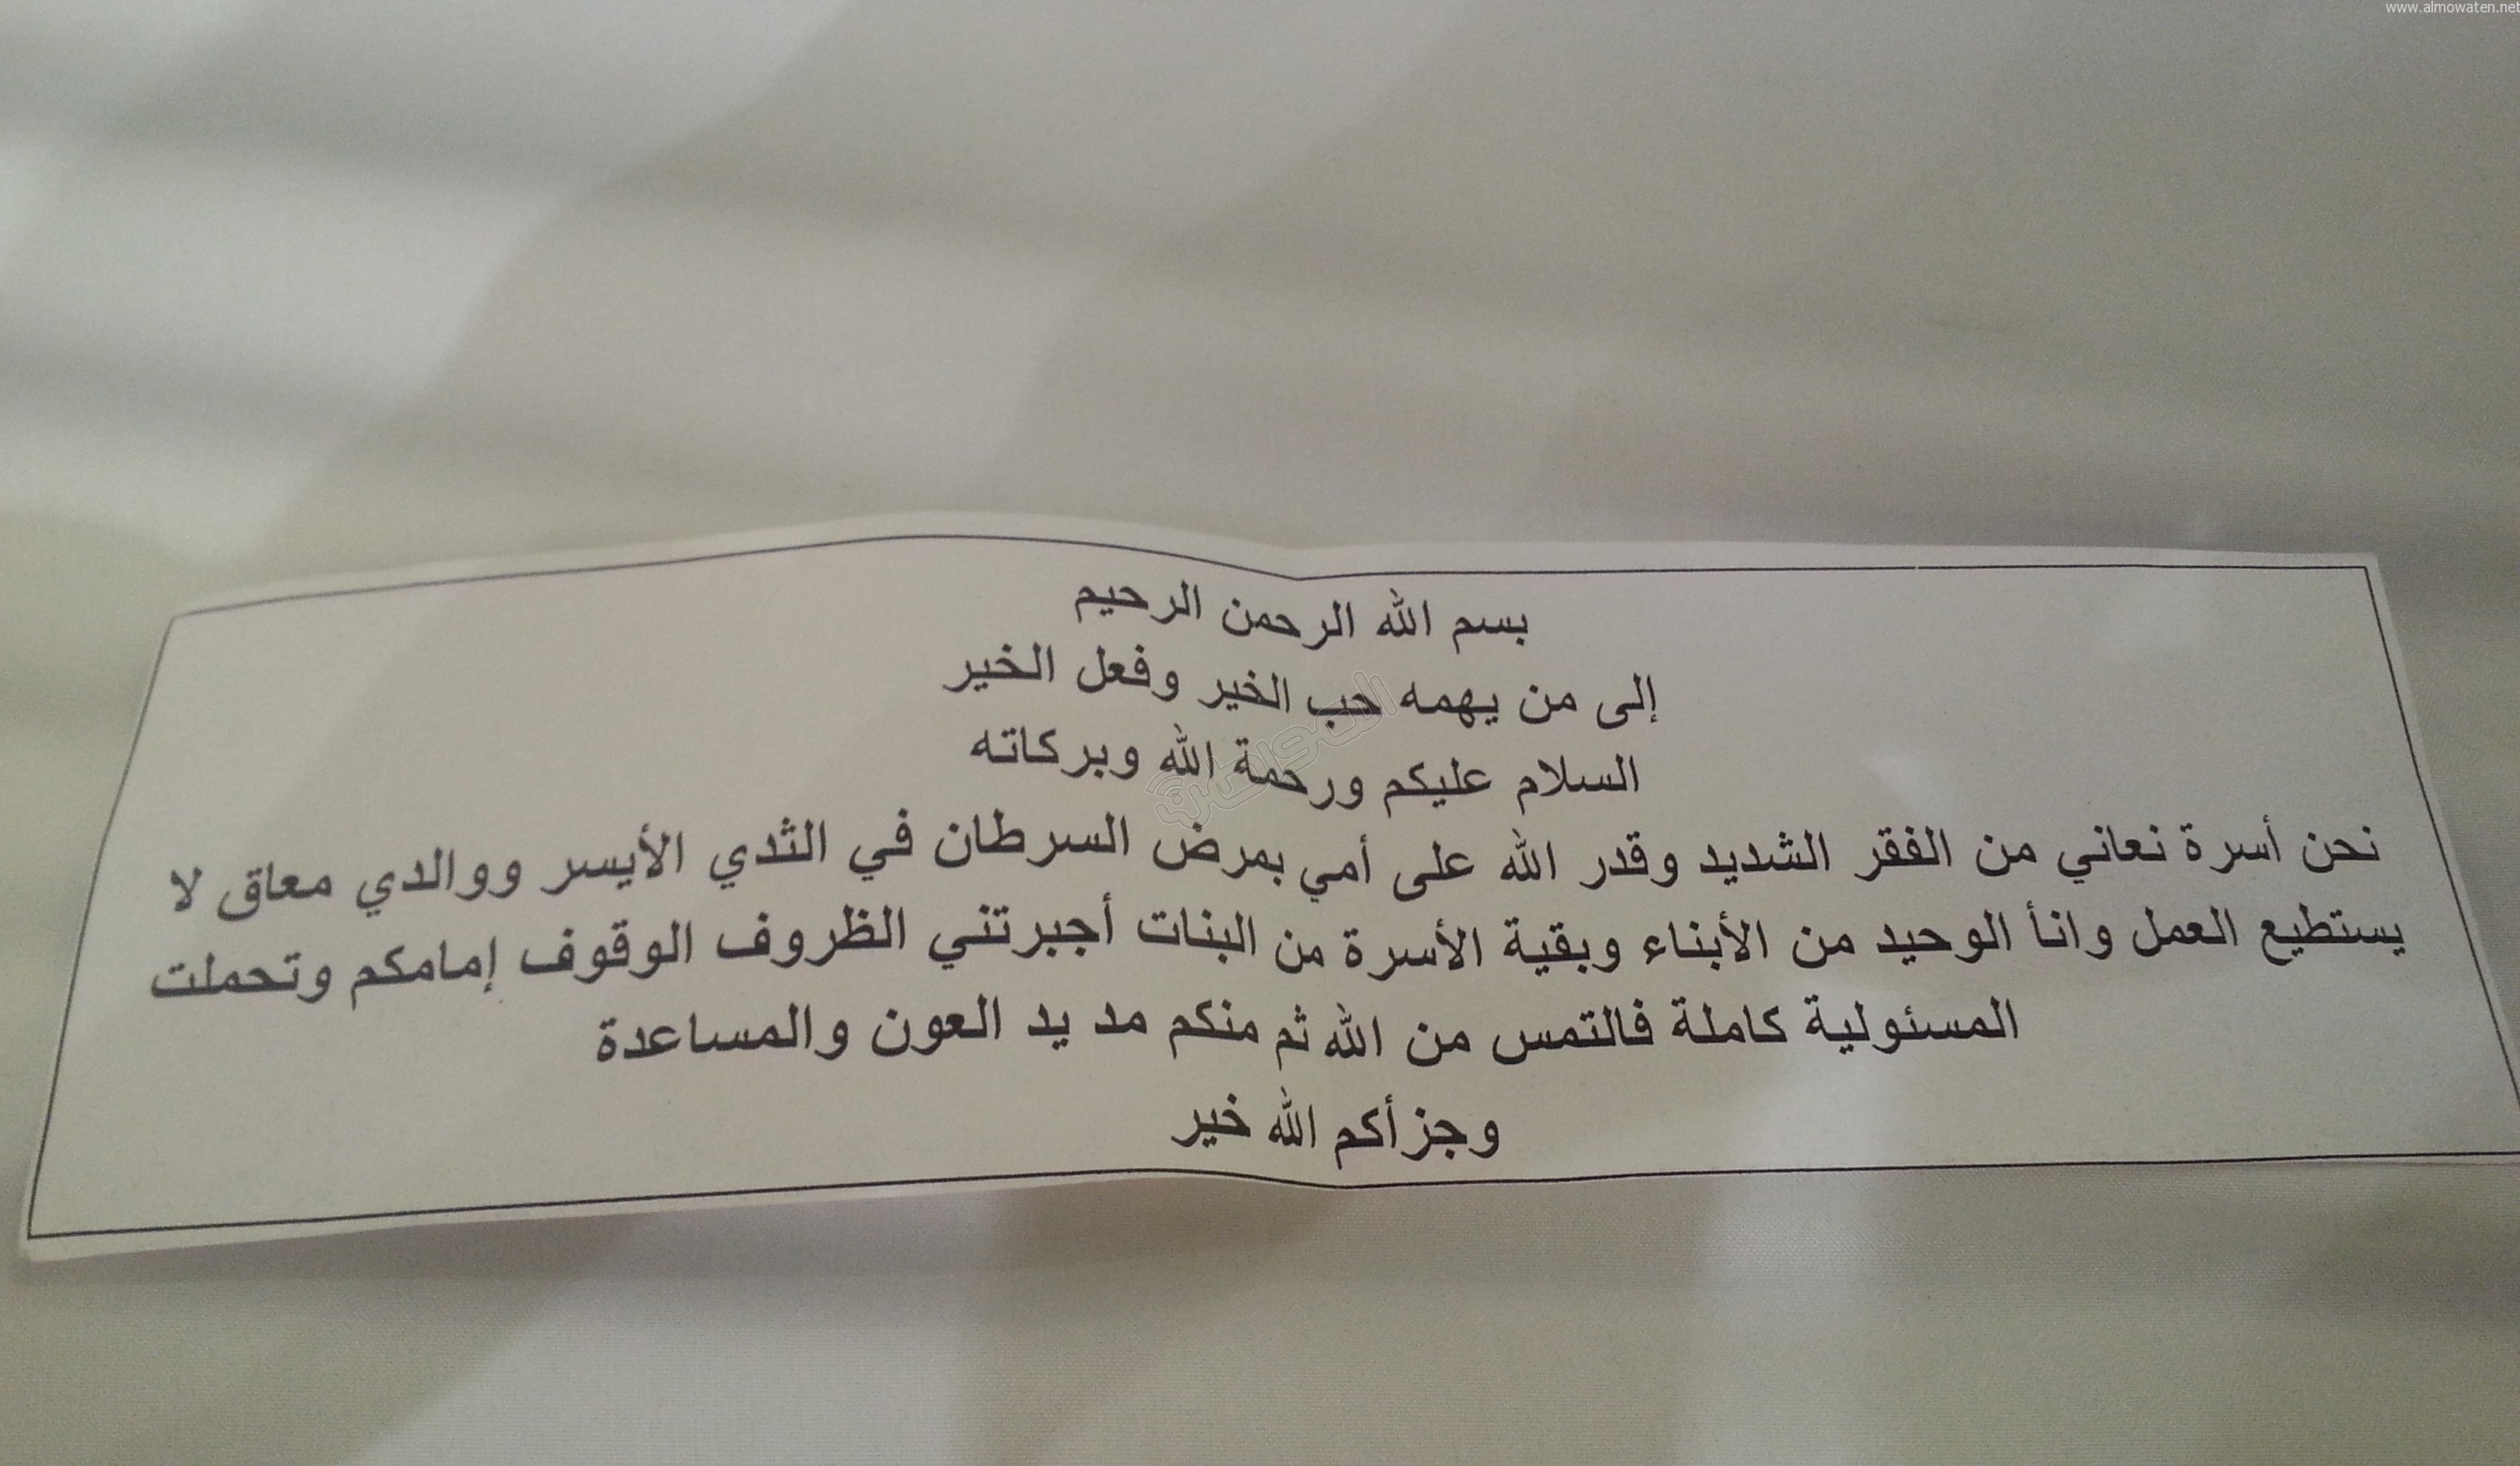 www.almowaten.net
بسم الله الرحمن الرحيم
إلى من يهمه حب الخير وفعل الخير
السلام عليكم ورحمة الله وبركاته
نحن أسرة نعاني من الفقر الشديد وقدر الله على أمي بمرض السرطان في الثدي الأيسر ووالدي معاق لا
يستطيع العمل وانأ الوحيد من الأبناء وبقية الأسرة من البنات أجبرتني الظروف الوقوف إمامكم وتحملت
المسئولية كاملة فالتمس من الله ثم منكم مد يد العون والمساعدة
وجزأكم الله خير
المواطن